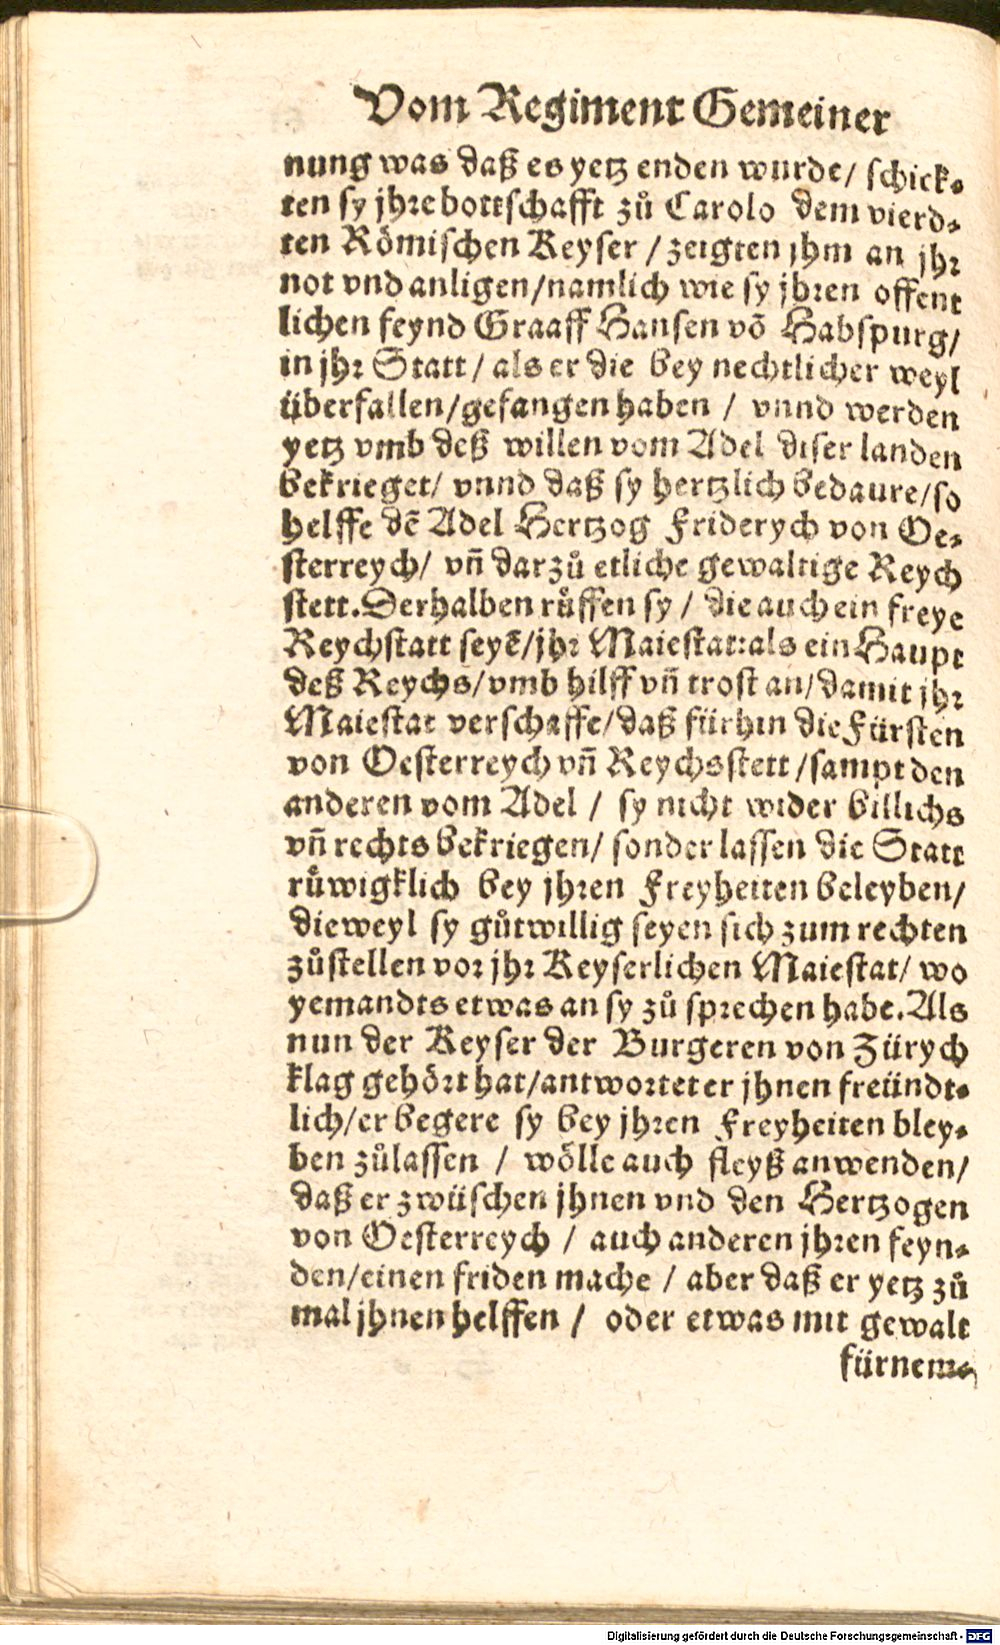 Vom Regiment Gemeiner
nung was daß es yetz enden wurde/ schick⸗
ten sy jhre bottschafft zů Carolo dem vierd⸗
ten Römischen Keyser / zeigten jhm an jhr
not vnd anligen/namlich wie sy jhren offent
lichen feynd Graaff Hansen võ Habspurg/
in jhr Statt / als er die bey nechtlicher weyl
überfallen/gefangen haben / vnnd werden
yetz vmb deß willen vom Adel diser landen
bekrieget/ vnnd daß sy hertzlich bedaure/so
helffe dẽ Adel Hertzog Friderych von Oe⸗
sterreych/ vñ darzů etliche gewaltige Reych
stett. Derhalben růffen sy / die auch ein freye
Reychstatt seyẽ/jhr Maiestat:als ein Haupt
deß Reychs/vmb hilff vñ trost an/damit jhr
Maiestat verschaffe/daß fürhin die Fürsten
von Oesterreych vñ Reychsstett /sampt den
anderen vom Adel / sy nicht wider billichs
vñ rechts bekriegen/ sonder lassen die Statt
růwigklich bey jhren Freyheiten beleyben/
dieweyl sy gůtwillig seyen sich zum rechten
zůstellen vor jhr Keyserlichen Maiestat/ wo
yemandts etwas an sy zů sprechen habe. Als
nun der Keyser der Burgeren von Zürych
klag gehört hat/antwortet er jhnen freündt⸗
lich/er begere sy bey jhren Freyheiten bley⸗
ben zůlassen / wölle auch fleyß anwenden/
daß er zwüschen jhnen vnd den Hertzogen
von Oesterreych / auch anderen jhren feyn⸗
den/einen friden mache / aber daß er yetz zů
mal jhnen helffen / oder etwas mit gewalt
fürnem⸗
Digitalisierung gefördert durch die Deutsche Forschungsgemeinschaft - DFG